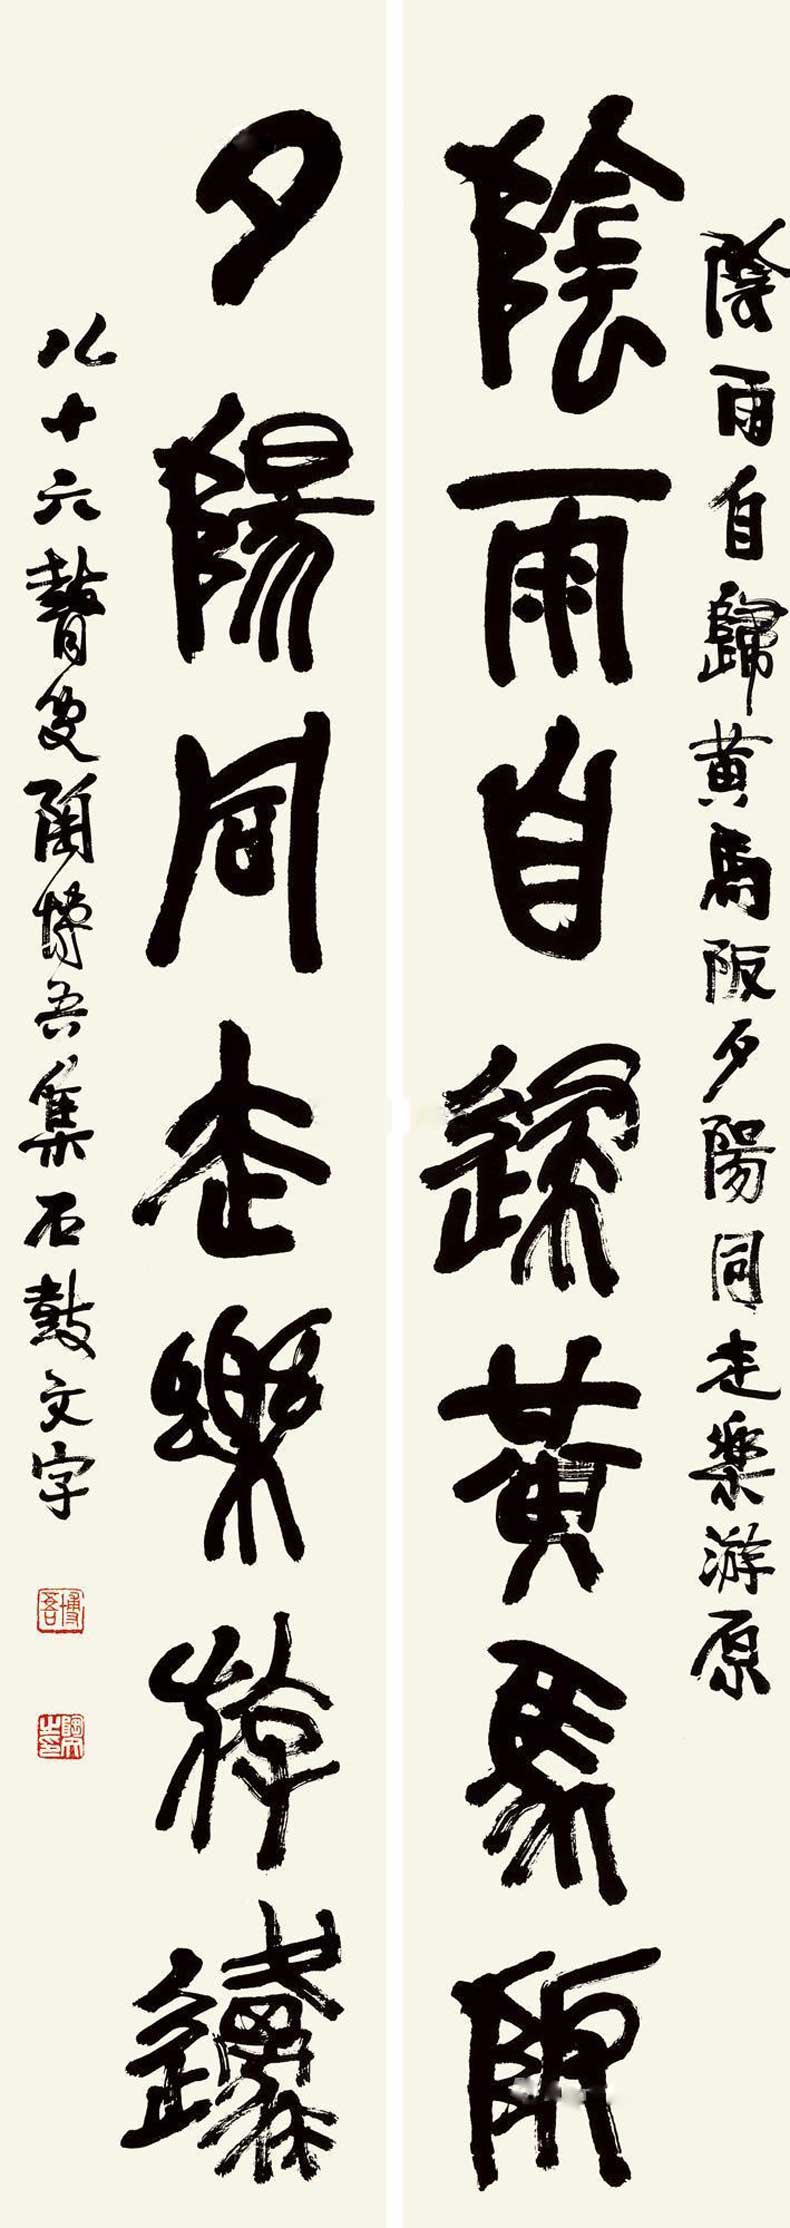 陰雨自歸黃馬阪夕陽同走樂游原
陰雨自歸黃馬阪
夕陽同走樂游原
八十六瞽叟陶博吾集石鼓文字
博吾
陶文之印